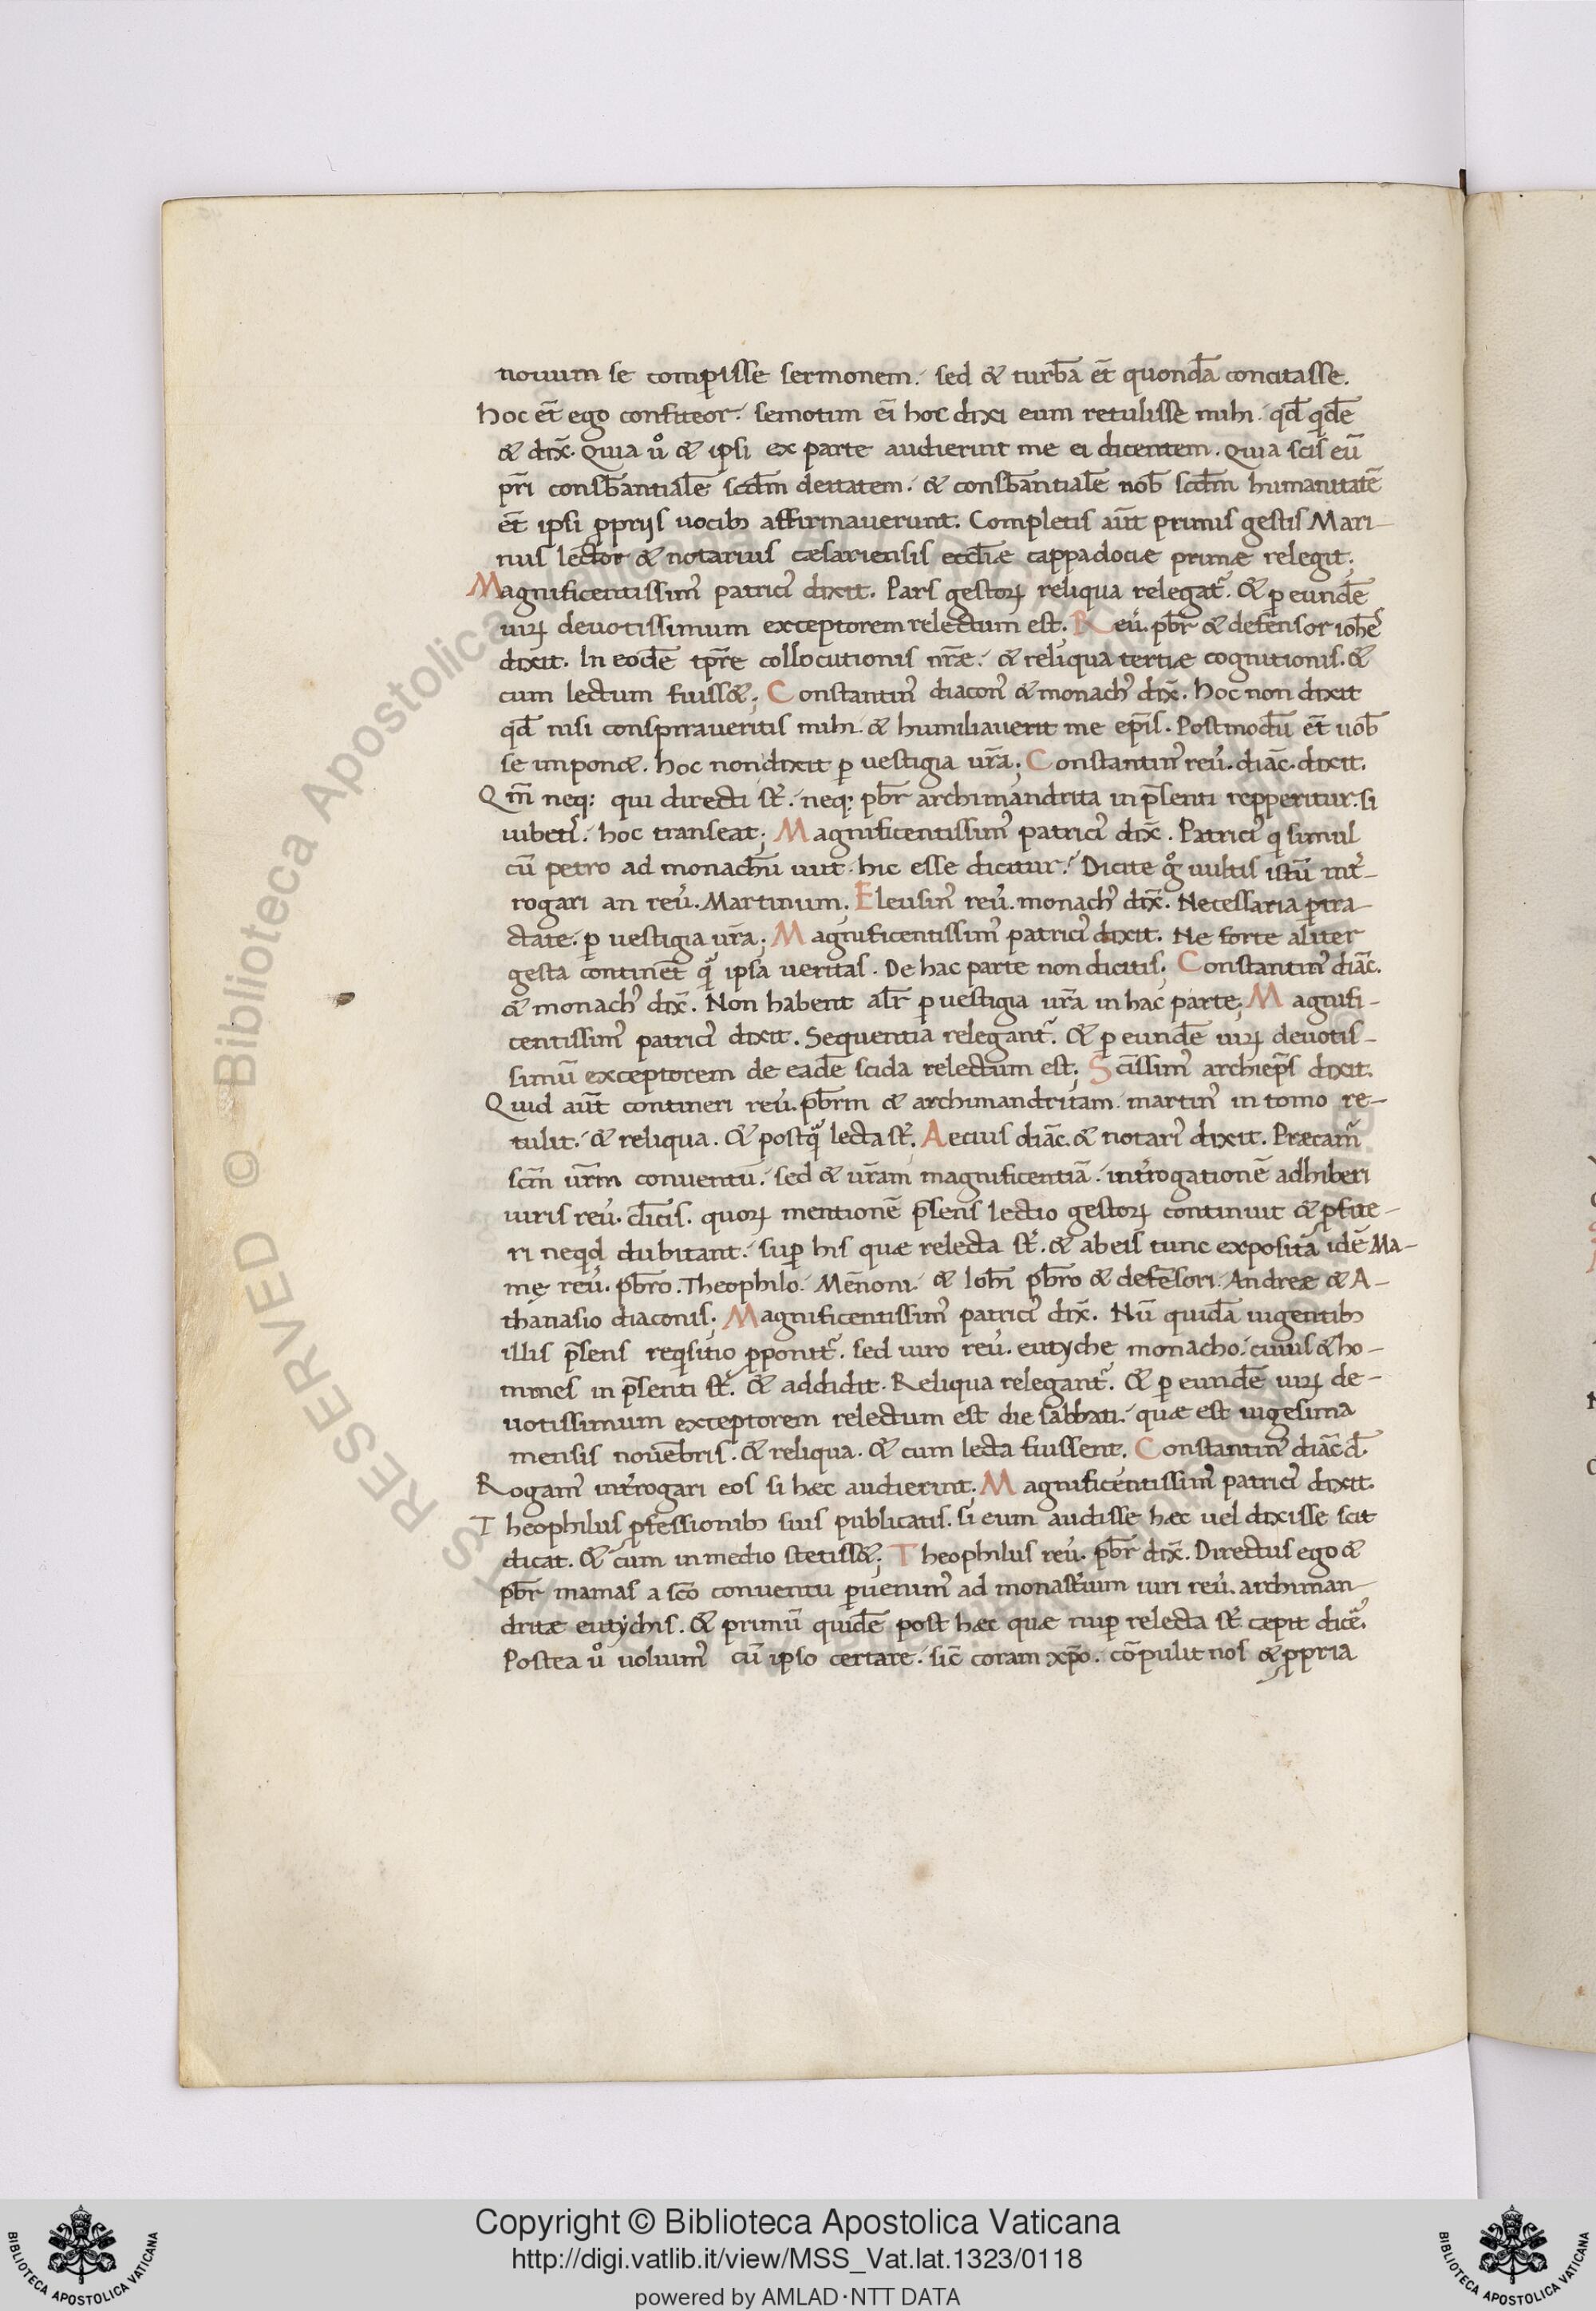 nouum se comperisse sermonem. sed & turbā et̄ quondā concitasse.
Hoc et̄ ego confiteor. semotim ei hoc dixi eum retulisse mihi. qđ qđē
& dix̄. Quia ů & ipsi ex parte audierunt me ei dicentem. Quia scis eū
pr̄i consb̄antialē scd̄m deitatem. & consb̄antialē nob̄ scd̄m humanitatē
et̄ ipsi ꝓprijs uocib; affirmauerunt. Completis aūt primis gestis Mari-
nus lector & notarius cæsariensis eccl̄iæ cappadociæ primæ relegit;
Magnificentissim⁹ patrici⁹ dixit. Pars gestoꝝ reliqua relegat᷑. & ꝑ eundē
uiꝝ deuotissimum exceptorem relectum est. Reū. pb̄r & defensor ioh̄es
dixit. In eodē tp̄re collocutionis nr̄æ. & reliqua tertiæ cognitionis. &
cum lectum fuiss&; Constantin⁹ diacon⁹ & monach⁹ dix̄. Hoc non dixit
qđ nisi conspiraueritis mihi. & humiliauerit me ep̄is. Postmodū et̄ uob̄
se impon&. hoc non dixit ꝑ uestigia ur̄a; Constantin⁹ reū. diāc. dixit.
Qm̄ neq; qui directi st̄. neq; pb̄r archimandrita in p̄senti repperitur. si
iubetis. hoc transeat; Magnificentissim⁹ patrici⁹ dix̄. Patrici⁹ q simul
cū petro ad monachū iuit. hic esse dicitur. Dicite g̊ uultis istū int̄-
rogari an reū. Martinum. Eleusin⁹ reū. monach⁹ dix̄. Necessaria ꝑtra-
ctate. ꝑ uestigia ur̄a; Magnificentissim⁹ patrici⁹ dixit. Ne forte aliter
gesta continet̄ q̄ ipsa ueritas. De hac parte non dicitis. Constantin⁹ diāc.
& monach⁹ dix̄. Non habent al̄r ꝑ uestigia ur̄a in hac parte; Magnifi-
centissim⁹ patrici⁹ dixit. Sequentia relegant᷑. & ꝑ eundē uiꝝ deuotis-
simū exceptorem de eadē scida relectum est; Sc̄issim⁹ archiep̄s dixit.
Quid aūt contineri reū. pb̄rm & archimandritam. martin⁹ in tomo re-
tulit. & reliqua. & postq̄ lecta st̄. Aecius diāc. & notari⁹ dixit. Præcam̄
sc̄m ur̄m conuentū. sed & ur̄am magnificentiā. int̄rogationē adhiberi
uiris reū. cl̄icis. quoꝝ mentionē p̄sens lectio gestoꝝ continuit & ꝓfite-
ri neqd dubitant. suꝑ his quæ relecta st̄. & ab eis tunc exposita idē Ma-
me reū. pb̄ro. Theophilo. Mēnoni. & Ioh̄i pb̄ro & defēsori. Andreæ & A-
thanasio diaconis. Magnificentissim⁹ patrici⁹ dix̄. Nū quidā uigentib;
illis p̄sens reqisitio ꝓponit᷑. sed uiro reū. eutyche monacho. cuius & ho-
mines in p̄senti st̄. & addidit. Reliqua relegant᷑. & ꝑ eundē uiꝝ de-
uotissimum exceptorem relectum est die sabbati. quæ est uigesima
mensis nouēbris. & reliqua. & cum lecta fuissent. Constantin⁹ diāc d̄.
Rogam⁹ int̄rogari eos si hæc audierint. Magnificentissim⁹ patrici⁹ dixit.
Theophilus ꝓfessionib; suis publicatis. si eum audisse hæc uel dixisse scit
dicat. & cum in medio stetiss&; Theophilus reū. pb̄r dix̄. Directus ego &
pb̄r mamas a sc̄o conuentu ꝑuenim⁹ ad monast̄ium uiri reū. archiman-
dritæ eutychis. & primū quidē post hæc quæ nuꝑ relecta st̄ cæpit dicē.
Postea ů uoluim⁹ cū ipso certare. sic̄ coram xp̄o. cōpulit nos & ꝓpria
Copyright © Biblioteca Apostolica Vaticana
http://digi.vatlib.it/view/MSS_Vat.lat.1323/0118
powered by AMLAD·NTT DATA